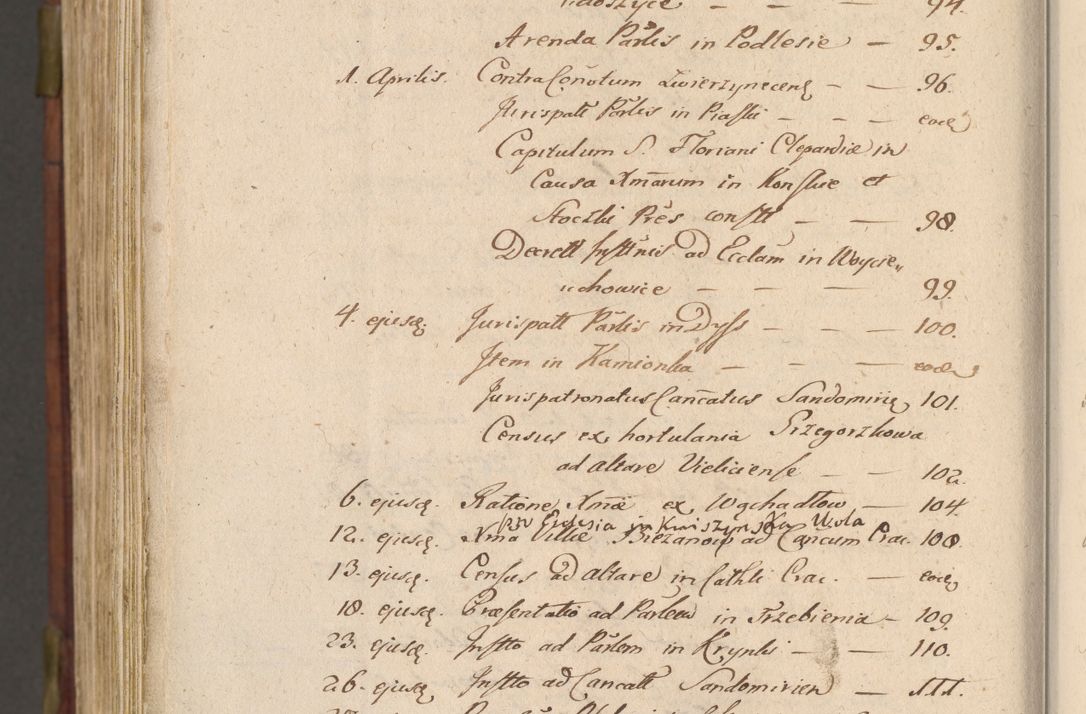 94.
Arenda Parlis in Podlesie — 95.
1. Aprilis. Contra Conotum Zwierzynecens — 96.
Jurispatt Parlis in Piaski — — — eode
Capitulum S. Floriani Clepardiæ in
Causa Xmarum in Konskie et
Stoczki Pres constt — — 98.
Decrett Insttnis ad Ecclam in Woycie„
uchowice — — — 99.
4. ejusd. Jurispatt Parlis in Dyss — — — 100.
Item in Kamionka — — — eode
Jurispatronatus Cancatus Sandomirie 101.
Census ex hortulania Grzegorzkowa
ad altare Vieliciense — — 102.
6. ejusd. Ratione Xmæ ex Wgchadlow — 104.
pro Ecclesia in Wola
12. ejusd. Xma Villæ Biezanow ad Cancum Crac. 108.
13. ejusd. Census ad altare in Cathli Crac. — eode
18. ejusd. Præsentatio ad Parlem in Trzebienia — 109.
23. ejusd. Instto ad Parlem in Krynki — — 110.
26. ejusd. Instto ad Cancatt Sandomirien — 111.